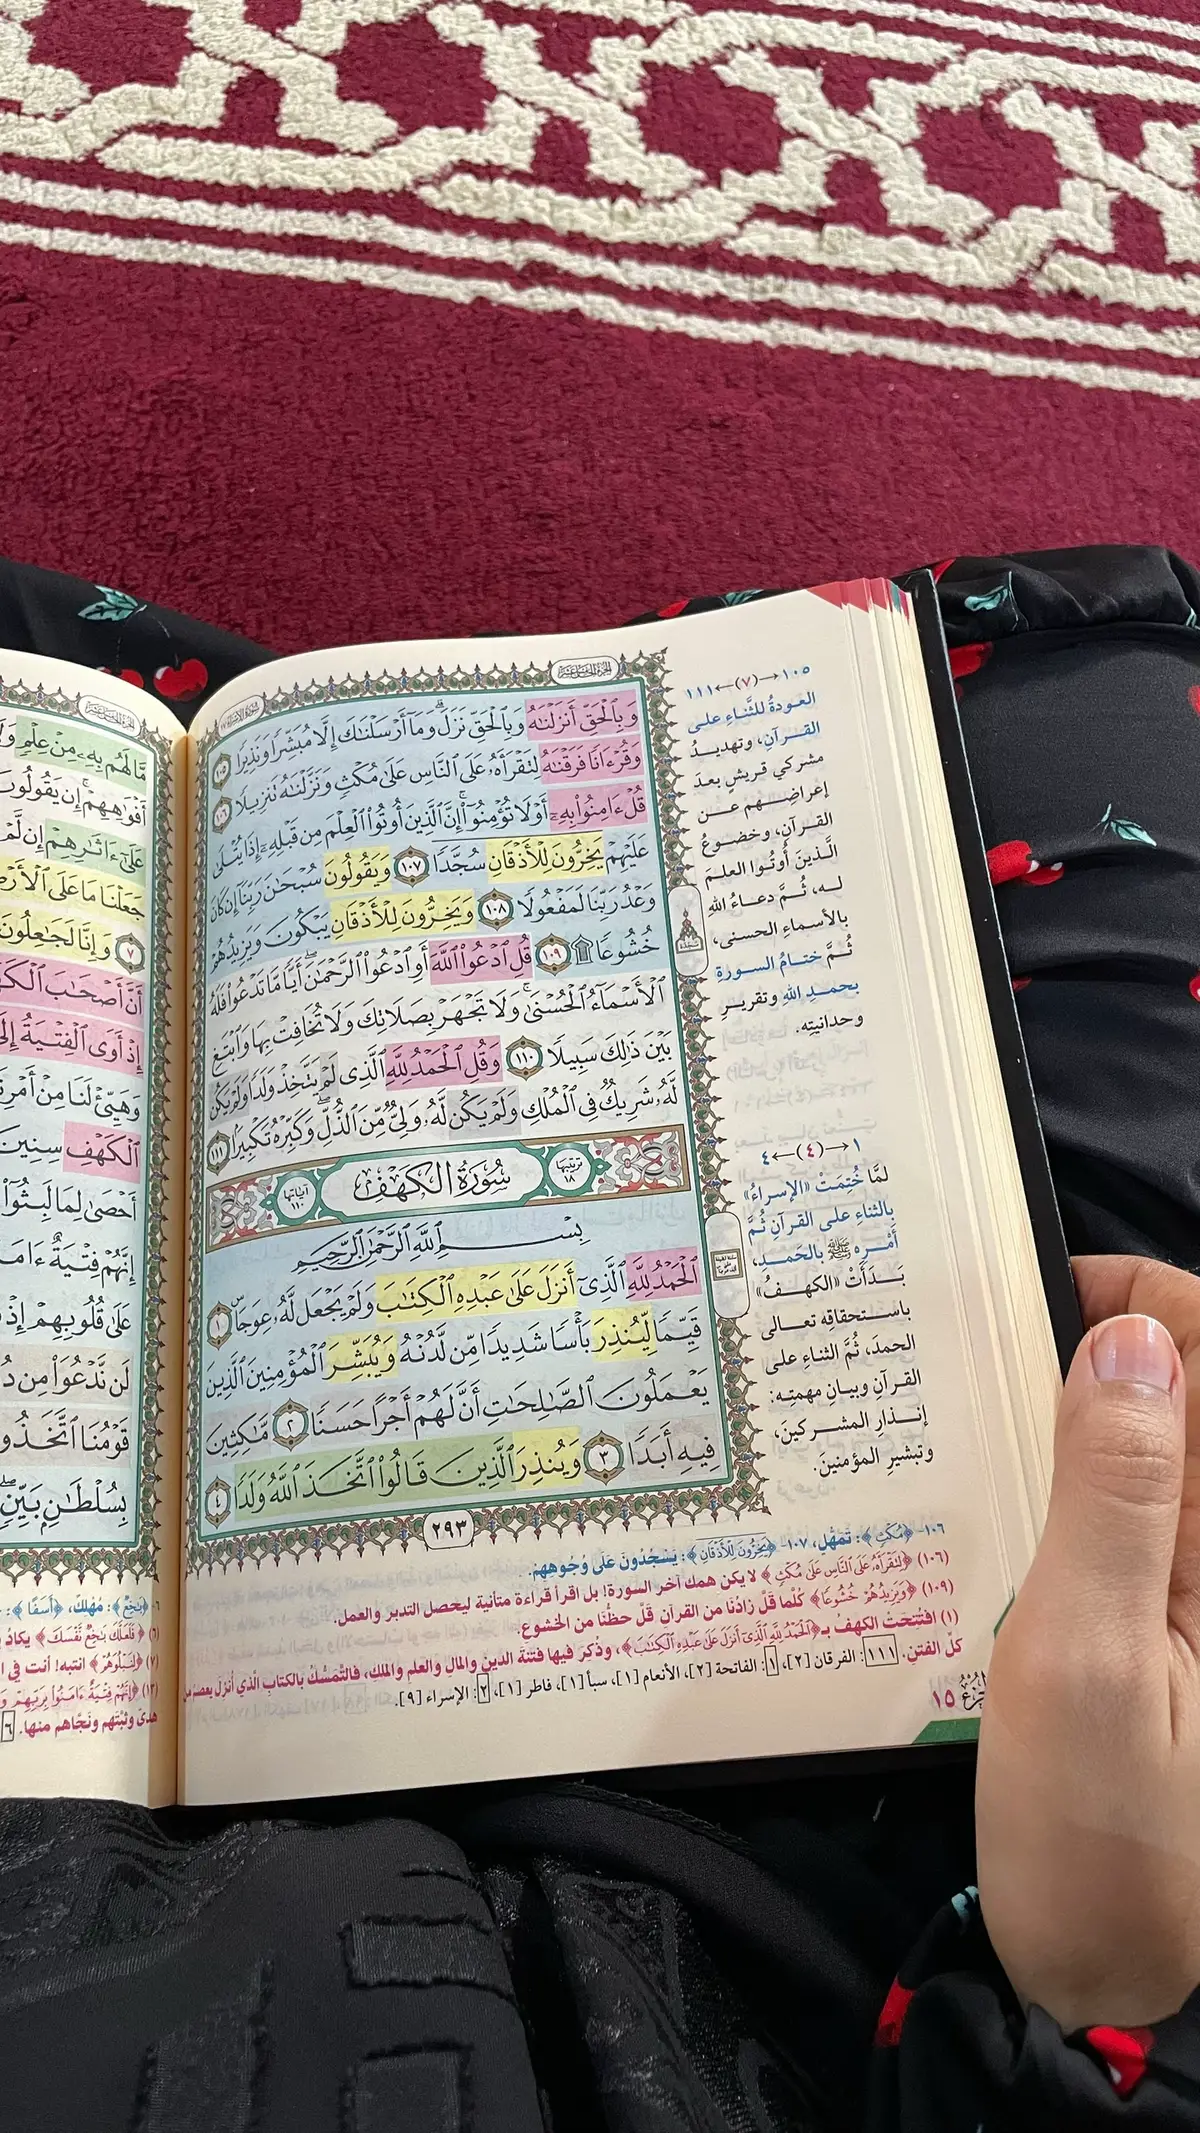 سُورَةُ الإِسۡرَاءِ ١٧
الجُزءُ الخَامِسَ عَشَرَ
وَبِٱلۡحَقِّ أَنزَلۡنَٰهُ وَبِٱلۡحَقِّ نَزَلَۗ وَمَآ أَرۡسَلۡنَٰكَ إِلَّا مُبَشِّرٗا وَنَذِيرٗا ١٠٥
وَقُرۡءَانٗا فَرَقۡنَٰهُ لِتَقۡرَأَهُۥ عَلَى ٱلنَّاسِ عَلَىٰ مُكۡثٖ وَنَزَّلۡنَٰهُ تَنزِيلٗا ١٠٦
قُلۡ ءَامِنُواْ بِهِۦٓ أَوۡ لَا تُؤۡمِنُوٓاْۚ إِنَّ ٱلَّذِينَ أُوتُواْ ٱلۡعِلۡمَ مِن قَبۡلِهِۦٓ إِذَا يُتۡلَىٰ
عَلَيۡهِمۡ يَخِرُّونَۤ لِلۡأَذۡقَانِۤ سُجَّدٗاۤ ١٠٧ وَيَقُولُونَ سُبۡحَٰنَ رَبِّنَآ إِن كَانَ
وَعۡدُ رَبِّنَا لَمَفۡعُولٗا ١٠٨ وَيَخِرُّونَ لِلۡأَذۡقَانِ يَبۡكُونَ وَيَزِيدُهُمۡ
خُشُوعٗا۩ ١٠٩ قُلِ ٱدۡعُواْ ٱللَّهَ أَوِ ٱدۡعُواْ ٱلرَّحۡمَٰنَۖ أَيّٗا مَّا تَدۡعُواْ فَلَهُ
ٱلۡأَسۡمَآءُ ٱلۡحُسۡنَىٰۚ وَلَا تَجۡهَرۡ بِصَلَاتِكَ وَلَا تُخَافِتۡ بِهَا وَٱبۡتَغِ
بَيۡنَ ذَٰلِكَ سَبِيلٗا ١١٠ وَقُلِ ٱلۡحَمۡدُ لِلَّهِ ٱلَّذِي لَمۡ يَتَّخِذۡ وَلَدٗا وَلَمۡ يَكُن
لَّهُۥ شَرِيكٞ فِي ٱلۡمُلۡكِ وَلَمۡ يَكُن لَّهُۥ وَلِيّٞ مِّنَ ٱلذُّلِّۖ وَكَبِّرۡهُ تَكۡبِيرَۢا ١١١
ترتيبها ١٨
سُورَةُ الكَهۡفِ
آياتها ١١٠
بِسۡمِ ٱللَّهِ ٱلرَّحۡمَٰنِ ٱلرَّحِيمِ
ٱلۡحَمۡدُ لِلَّهِ ٱلَّذِيٓ أَنزَلَ عَلَىٰ عَبۡدِهِ ٱلۡكِتَٰبَ وَلَمۡ يَجۡعَل لَّهُۥ عِوَجَاۜ ١
قَيِّمٗا لِّيُنذِرَ بَأۡسٗا شَدِيدٗا مِّن لَّدُنۡهُ وَيُبَشِّرَ ٱلۡمُؤۡمِنِينَ ٱلَّذِينَ
يَعۡمَلُونَ ٱلصَّٰلِحَٰتِ أَنَّ لَهُمۡ أَجۡرًا حَسَنٗا ٢ مَّٰكِثِينَ
فِيهِ أَبَدٗا ٣ وَيُنذِرَ ٱلَّذِينَ قَالُواْ ٱتَّخَذَ ٱللَّهُ وَلَدٗا ٤
٢٩٣
١٠٥→(٧)←١١١
العودةُ للثَّناءِ على
القرآنِ، وتهديدُ
مشركي قريشٍ بعدَ
إعراضِهم عن
القرآنِ، وخضوعُ
الَّذينَ أُوتُوا العلمَ
له، ثُمَّ دعاءُ اللهِ
بالأسماءِ الحسنى،
ثُمَّ ختامُ السورةِ
بحمدِ اللهِ وتقريرِ
وحدانيتِه.
١→(٤)←٤
لمَّا خُتِمَتْ «الإسراءُ»
بالثناءِ على القرآنِ ثُمَّ
أَمْرِه ﷺ بالحَمدِ،
بَدَأَتْ «الكهفُ»
باستحقاقِه تعالى
الحمدَ، ثُمَّ الثناءِ على
القرآنِ وبيانِ مهمتِه:
إنذارِ المشركينَ،
وتبشيرِ المؤمنينَ.
١٠٦- ﴿مُكْثٍ﴾: تَمَهُّلٍ، ١٠٧- ﴿يَخِرُّونَ لِلْأَذْقَانِ﴾: يَسْجُدُونَ عَلَى وُجُوهِهِمْ.
(١٠٦) ﴿لِتَقْرَأَهُ عَلَى النَّاسِ عَلَى مُكْثٍ﴾ لا يكن همك آخر السورة! بل اقرأ قراءة متأنية ليحصل التدبر والعمل.
(١٠٩) ﴿وَيَزِيدُهُمْ خُشُوعًا﴾ كُلَّما قَلَّ زادُنَا من القرآنِ قَلَّ حظُّنَا من الخشوع.
(١) افتُتحتْ الكهفُ بـ﴿الْحَمْدُ لِلَّهِ الَّذِي أَنْزَلَ عَلَى عَبْدِهِ الْكِتَابَ﴾، وذُكِرَ فيها فتنةُ الدينِ والمالِ والعلمِ والملكِ، فالتمسُّكُ بالكتابِ الَّذي أُنزل يعصمُ من
كلِّ الفتنِ. ١١١: الفرقان [٢]، ١: الفاتحة [٢]، الأنعام [١]، سبأ [١]، فاطر [١]، ٢: الإسراء [٩].
١٥
مَّا لَهُم بِهِۦ مِنۡ عِلۡمٖ
أَفۡوَٰهِهِمۡۚ إِن يَقُولُونَ
عَلَىٰٓ ءَاثَٰرِهِمۡ إِن لَّمۡ
جَعَلۡنَا مَا عَلَى ٱلۡأَرۡضِ
٧ وَإِنَّا لَجَٰعِلُونَ
أَنَّ أَصۡحَٰبَ ٱلۡكَهۡفِ
إِذۡ أَوَى ٱلۡفِتۡيَةُ إِلَى
وَهَيِّئۡ لَنَا مِنۡ أَمۡرِنَا
ٱلۡكَهۡفِ سِنِينَ
أَحۡصَىٰ لِمَا لَبِثُوٓاْ
إِنَّهُمۡ فِتۡيَةٌ ءَامَنُواْ
عَلَىٰ قُلُوبِهِمۡ إِذۡ
لَن نَّدۡعُوَاْ مِن دُونِهِۦٓ
قَوۡمُنَا ٱتَّخَذُواْ
بِسُلۡطَٰنِۭ بَيِّنٖۖ
﴿بَاخِعٌ﴾: مُهْلِكٌ، ﴿أَسَفًا﴾:
(٦) ﴿فَلَعَلَّكَ بَاخِعٌ نَفْسَكَ﴾ يكادُ
(٧) ﴿لِنَبْلُوَهُمْ﴾ انتبه! أنت في
(١٣) ﴿إِنَّهُمْ فِتْيَةٌ آمَنُوا بِرَبِّهِمْ
هدىً وثبَّتهم ونجَّاهم منها. ٦